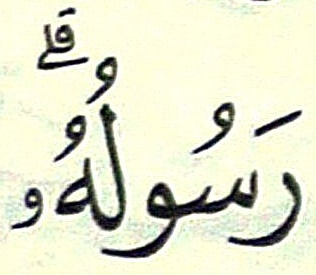 رَسُولُهُۥۗ